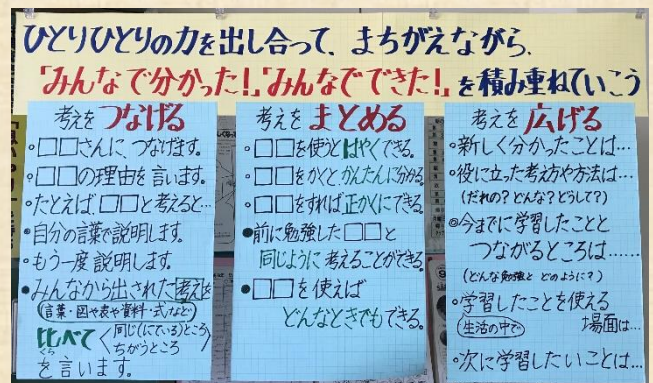 ひとりひとりの力を出し合って、まちがえながら、
「みんなで分かった!」「みんなでできた!」を積み重ねていこう
考えをつなげる
◦□□さんに、つなげます。
◦□□の理由を言います。
◦たとえば、□□と考えると…
●自分の言葉で説明します。
◦もう一度説明します。
●みんなから出された考えを
(言葉・図や表や資料・式など)
比べて〈同じ(にている)ところ
くら
ちがうところ
を言います。
考えをまとめる
◦□□を使うとはやくできる。
◦□□をかくと、かんたんに分かる。
◦□□をすれば正かくにできる。
●前に勉強した□□と
同じように考えることができる。
●□□を使えば
どんなときでもできる。
考えを広げる
◦新しく分かったことは…
◦役に立った考え方や方法は…
(だれの?どんな?どうして?)
◎今までに学習したことと
つながるところは……
(どんな勉強と どのように?)
◦学習したことを使える
生活の中で 場面は…
◦次に学習したいことは…